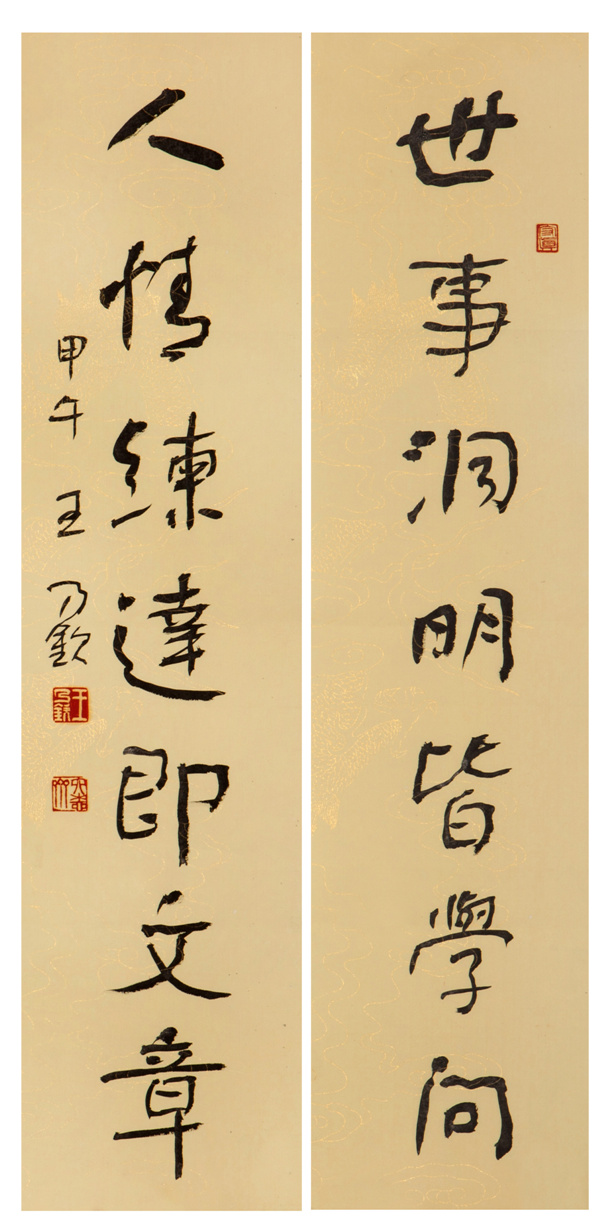 世事洞明皆學問
人情練達即文章
甲午 王乃欽
王乃欽